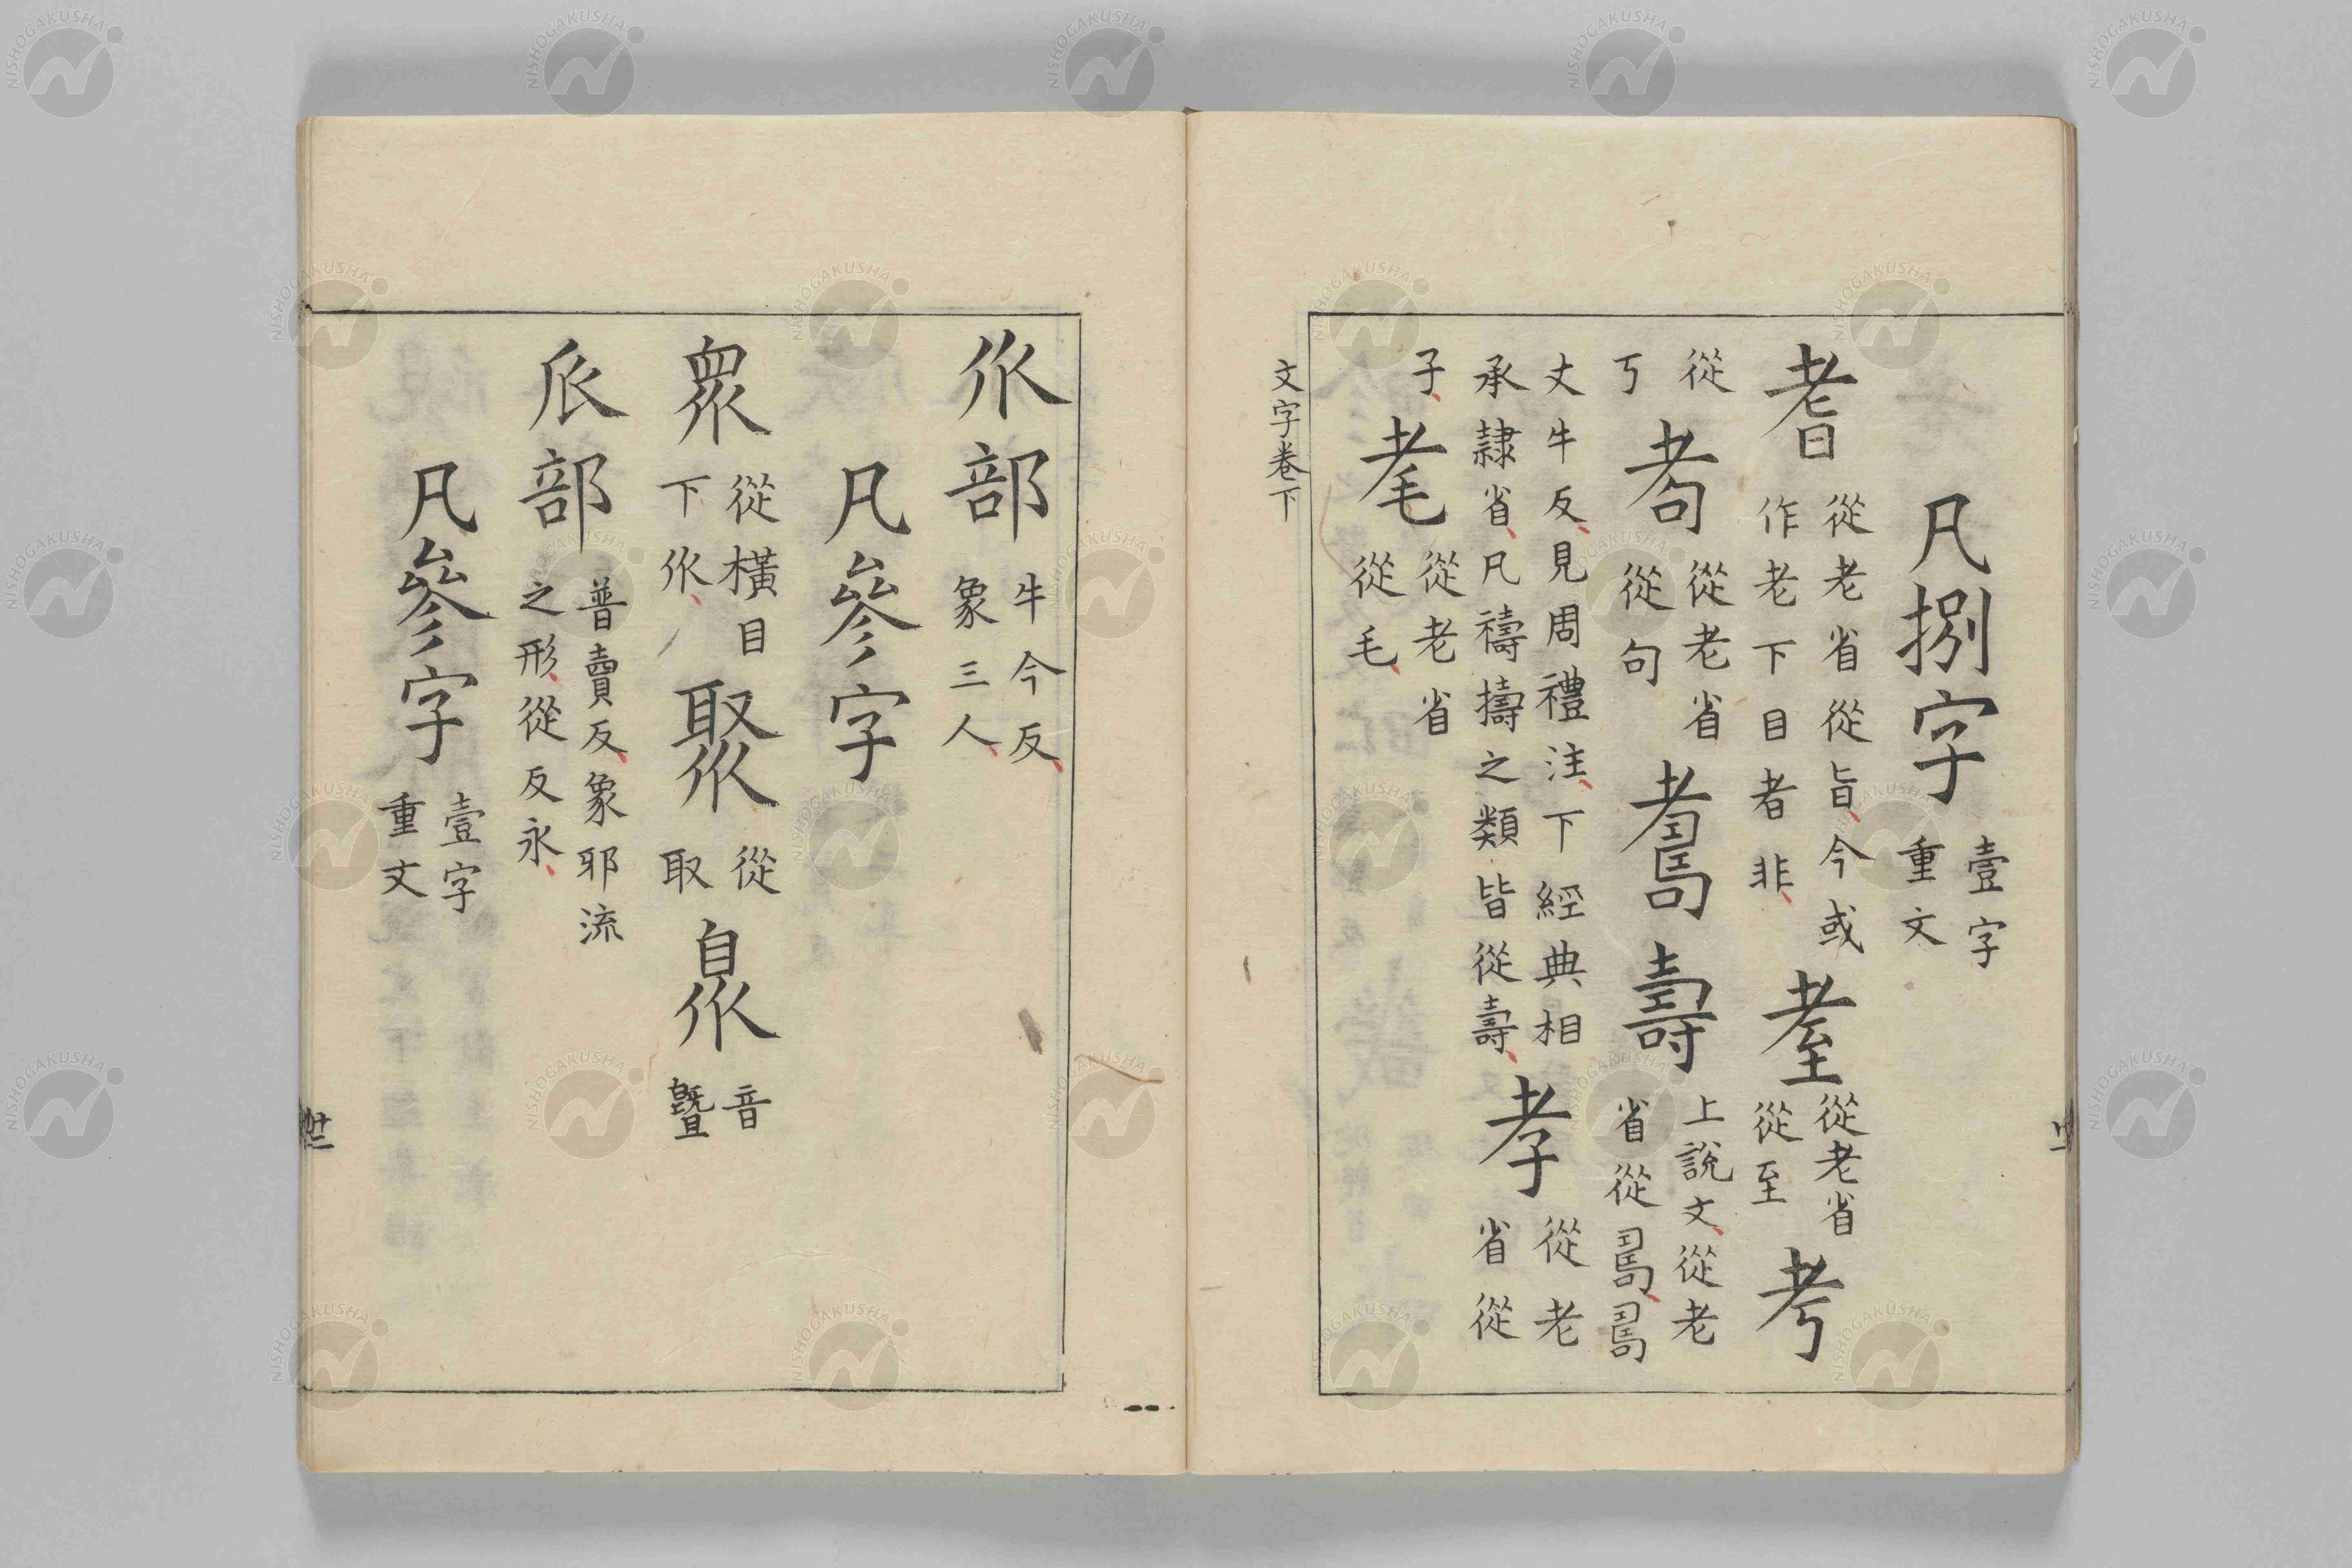 凡捌字 壹字重文
耆 從老省從旨今或作老下目者非 耊 從老省從至 考
從丂 耇 從老省從句 𦓃 壽 上說文從老省從𠷎𠷎
丈牛反見周禮注下經典相承隷省凡禱擣之類皆從壽 孝 從老省從
子 耄 從老省從毛
文字卷下
㐺部 牛今反象三人
凡參字
眾 從橫目下㐺 聚 從取 𣊫 音暨
𠂢部 普賣反象邪流之形從反永
凡參字 壹字重文
NISHOGAKUSHA